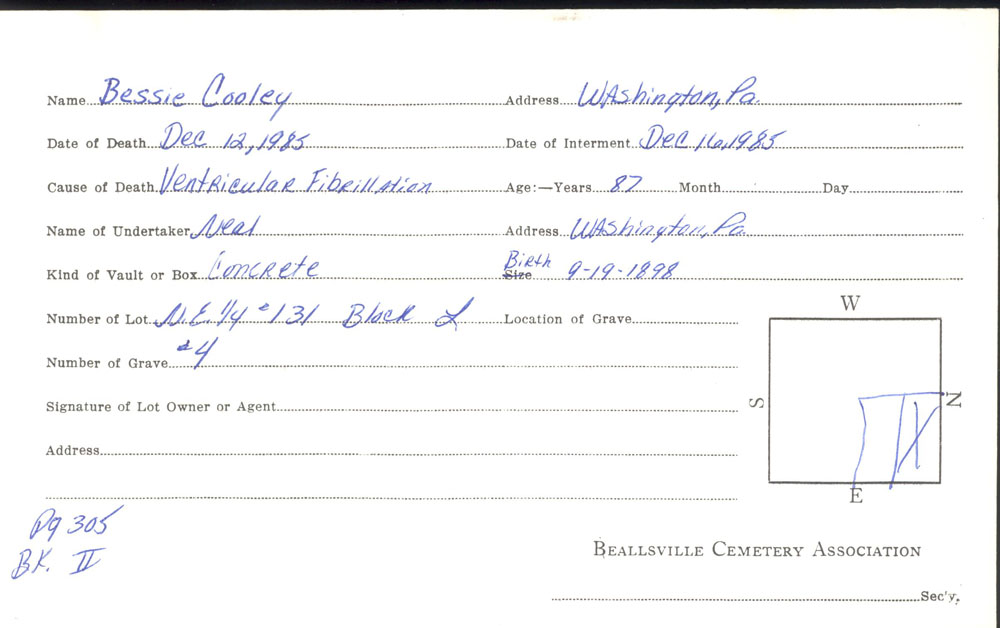 Name Bessie Cooley Address Washington, Pa.
Date of Death Dec 12, 1985 Date of Interment Dec 16, 1985
Cause of Death Ventricular Fibrillation Age:—Years 87 Month Day
Name of Undertaker Neal Address Washington, Pa.
Kind of Vault or Box Concrete Birth Size 9-19-1898
Number of Lot N.E. 1/4 #131 Block L Location of Grave
W
Number of Grave #4
Signature of Lot Owner or Agent
S N
Address
E
Pg 305
BK. II
BEALLSVILLE CEMETERY ASSOCIATION
Sec'y.